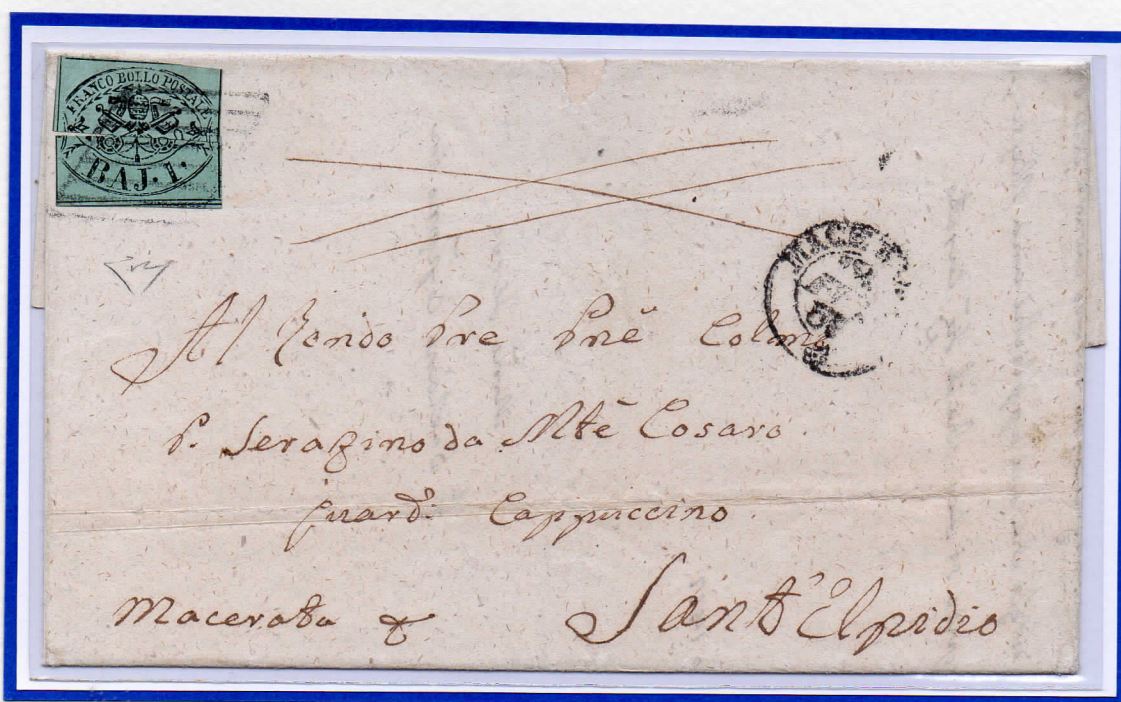 FRANCO BOLLO POSTALE
BAJ. 1.
MACE
Al Pre Pnē Colmo
P. Serafino da Mte Cosaro
Guard: Cappuccino
Macerata Sant'Elpidio